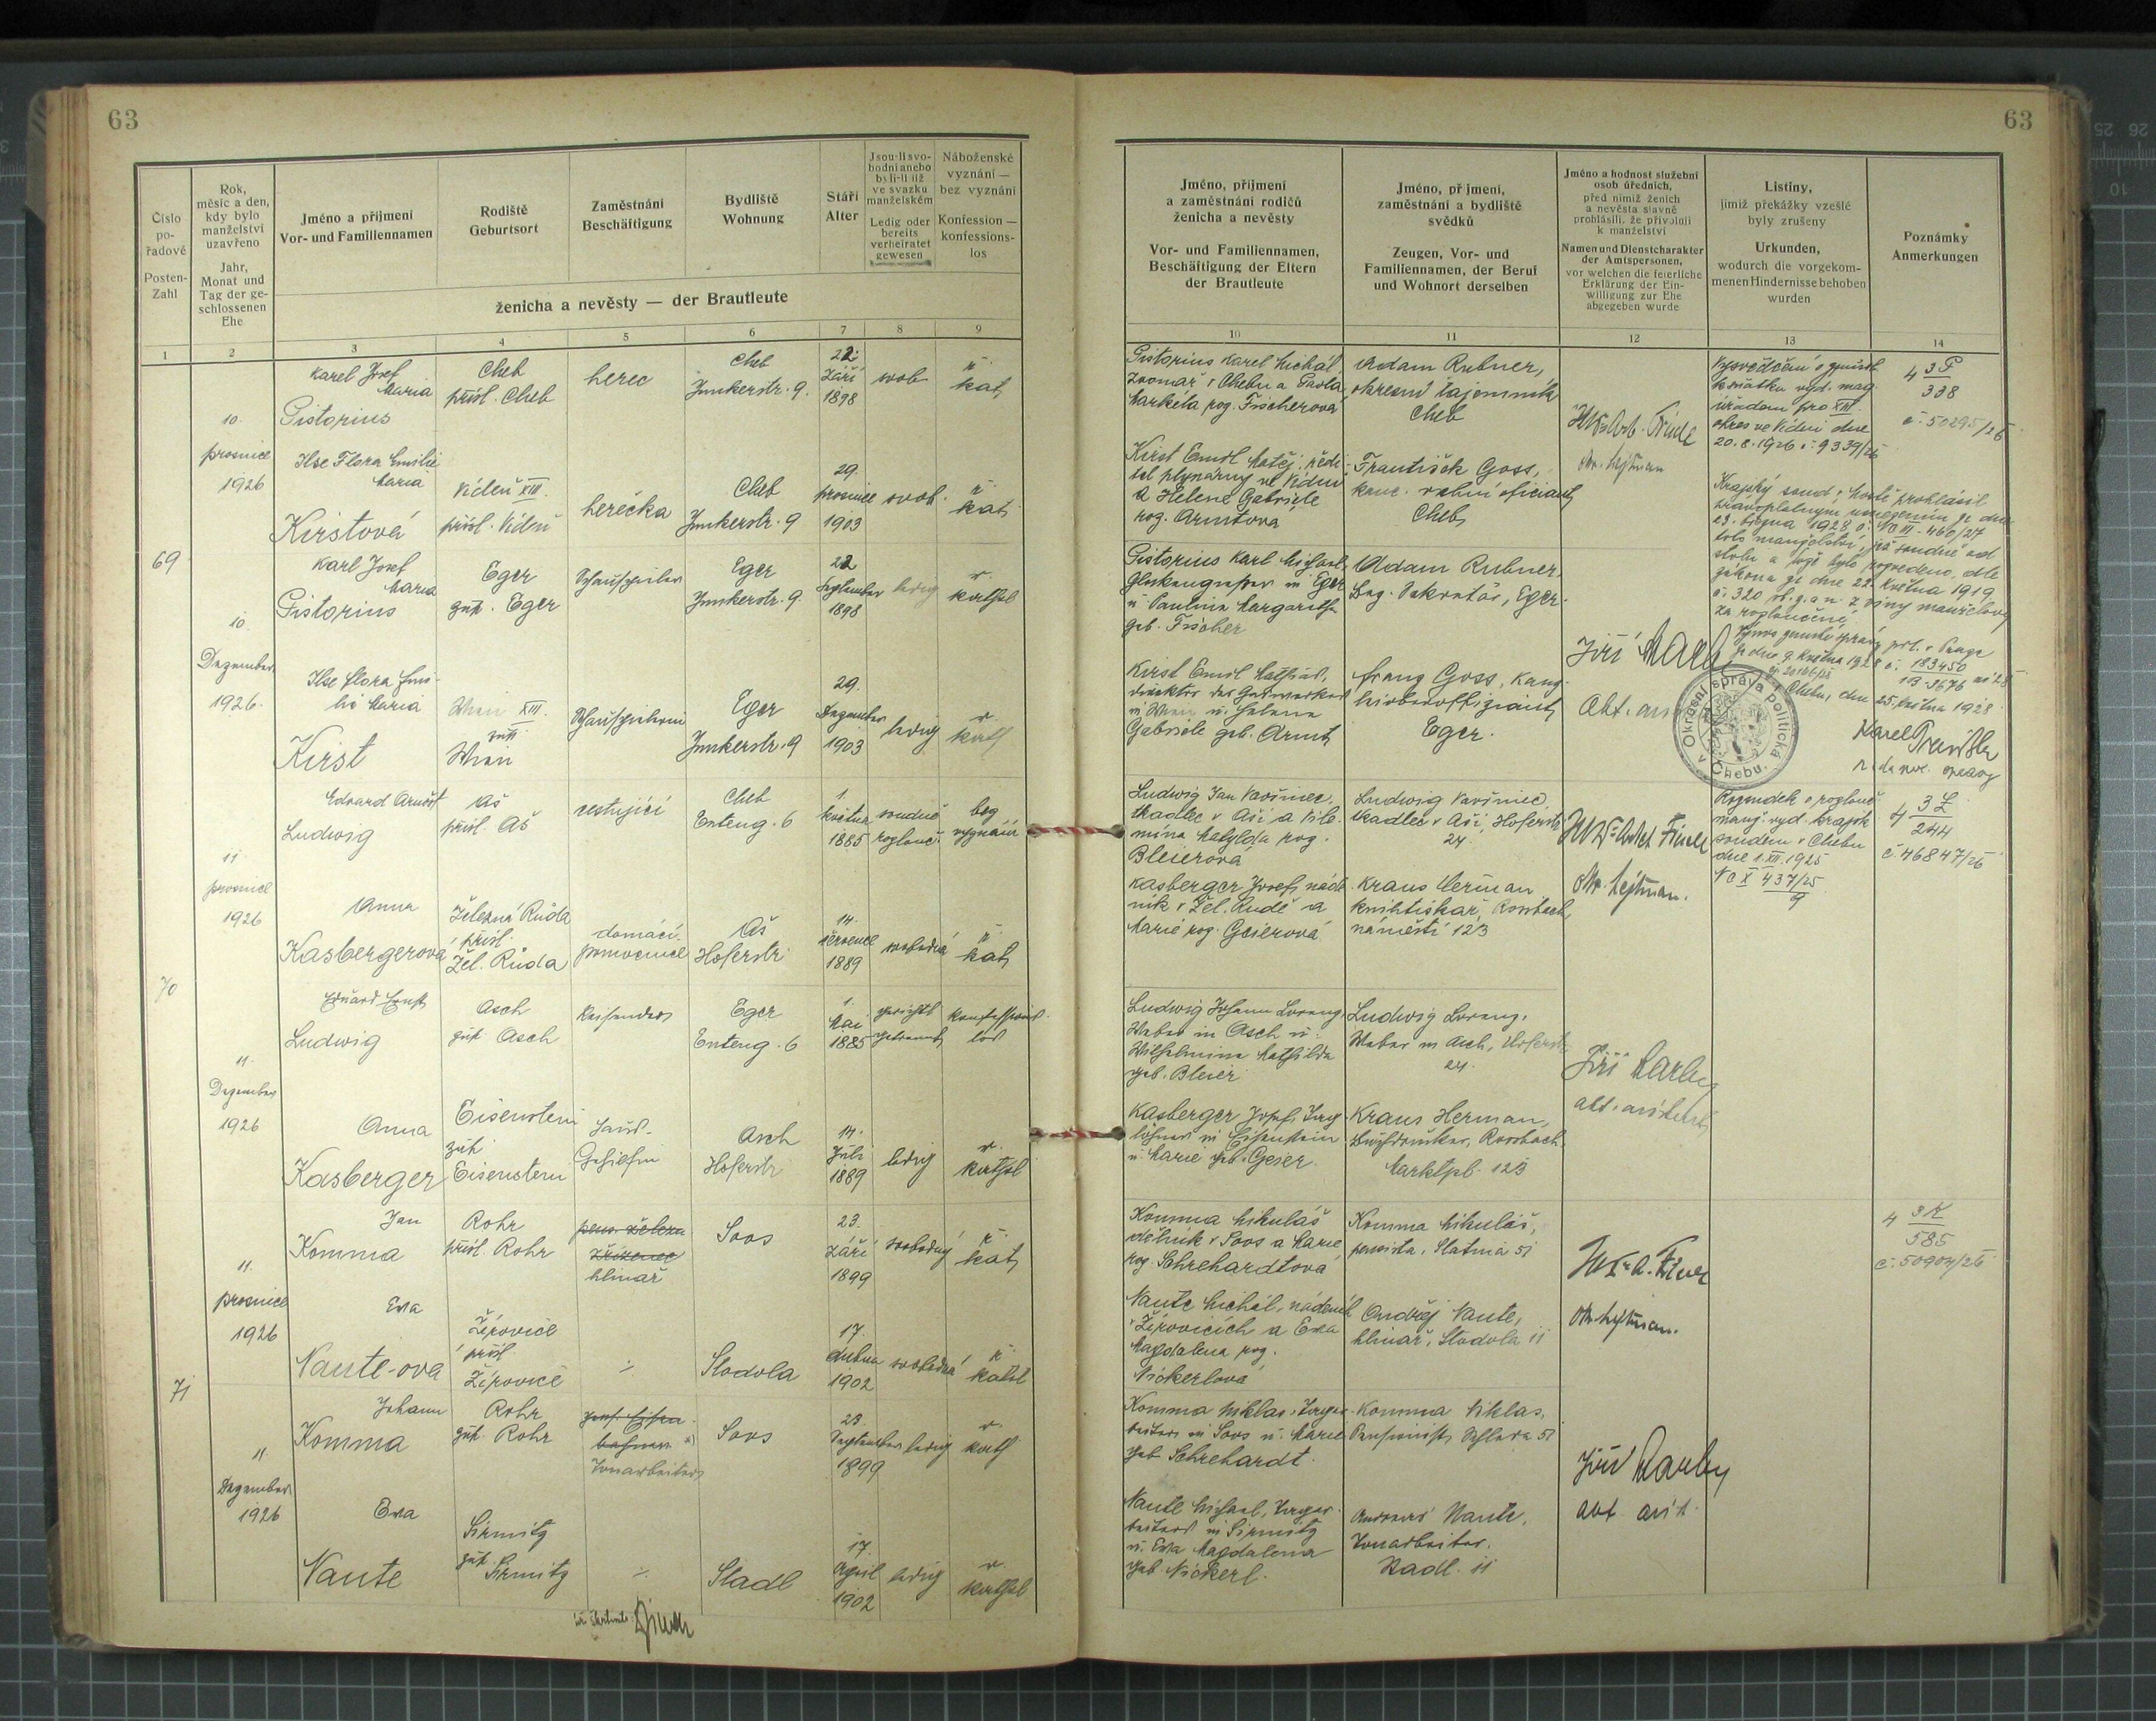 63
63
Číslo
po-
řadové
Posten-
Zahl
Rok,
měsíc a den,
kdy bylo
manželství
uzavřeno
Jahr,
Monat und
Tag der ge-
schlossenen
Ehe
Jméno a příjmení
Vor- und Familiennamen
Rodiště
Geburtsort
Zaměstnání
Beschäftigung
Bydliště
Wohnung
Stáří
Alter
Jsou-li svo-
bodni anebo
byli-li již
ve svazku
manželském
Ledig oder
bereits
verheiratet
gewesen
Náboženské
vyznání —
bez vyznání
Konfession —
konfessions-
los
ženicha a nevěsty — der Brautleute
1 2 3 4 5 6 7 8 9
69
10.
prosince
1926
Karel Josef
Maria
Pistorius
Cheb
přísl. Cheb
herec
Cheb
Junkerstr. 9.
22.
září
1898
svob.
ř.
kat.
Ilse Flora Emilie
Maria
Kirstová
Vídeň XIII.
přísl. Vídeň
herečka
Cheb
Junkerstr. 9
29.
prosince
1903
svob.
ř.
kat.
10.
Dezember
1926.
Karl Josef
Maria
Pistorius
Eger
zust. Eger
Schauspieler
Eger
Junkerstr. 9.
22
September
1898
ledig
r.
kathol
Ilse Flora Emi-
lie Maria
Kirst
Wien XIII.
zust
Wien
Schauspielerin
Eger
Junkerstr. 9
29.
Dezember
1903
ledig
r.
kath
70
11
prosince
1926
Edvard Arnošt
Ludwig
Aš
přísl. Aš
cestující
Cheb
Enteng. 6
1.
května
1885
soudně
rozlouč.
bez
vyznání
Anna
Kasbergerová
Železná Ruda
přísl.
Žel. Ruda
domácí
pomocnice
Aš
Hoferstr
14.
července
1889
svobodná
ř.
kat.
11.
Dezember
1926
Eduard Ernst
Ludwig
Asch
zust. Asch
Reisender
Eger
Enteng. 6
1.
Mai
1885
gerichtl
getrennt
konfessions-
los
Anna
Kasberger
Eisenstein
zust
Eisenstein
Haus-
Gehilfin
Asch
Hoferstr
14.
Juli
1889
ledig
r.
kathol
71
11.
prosince
1926
Jan
Komma
Rohr
přísl. Rohr
pens. železn
zřízenec
hlinař
Soos
23.
září
1899
svobodný
ř.
kat.
Eva
Naute-ova
Žírovice
přísl.
Žírovice
Stodola
17.
dubna
1902
svobodná
ř.
katol
11.
Dezember
1926
Johann
Komma
Rohr
zust. Rohr
Tonarbeiter
Soos
23.
September
1899
ledig
r.
kath
Eva
Naute
Sirmitz
zust. Sirmitz
Stadl
17.
April
1902
ledig
r.
kathol
Jméno, příjmení
a zaměstnání rodičů
ženicha a nevěsty
Vor- und Familiennamen,
Beschäftigung der Eltern
der Brautleute
Jméno, příjmení,
zaměstnání a bydliště
svědků
Zeugen, Vor- und
Familiennamen, der Beruf
und Wohnort derselben
Jméno a hodnost služební
osob úředních,
před nimiž ženich
a nevěsta slavně
prohlásili, že přivolují
k manželství
Namen und Dienstcharakter
der Amtspersonen,
vor welchen die feierliche
Erklärung der Ein-
willigung zur Ehe
abgegeben wurde
Listiny,
jimiž překážky vzešlé
byly zrušeny
Urkunden,
wodurch die vorgekom-
menen Hindernisse behoben
wurden
Poznámky
Anmerkungen
10 11 12 13 14
Pistorius Karel Michal,
zvonař v Chebu a Pavla
Markéta roz. Fischerová
Adam Rubner,
okresní tajemník
Cheb
okr. hejtman
Vysvědčení o způsob.
k sňatku vyd. mag.
úřadem pro XIII.
okres ve Vídni dne
20.8.1926 č. 9339/26
4 3P
338
č. 50295/26
Kirst Emil Matěj, ředi-
tel plynárny ve Vídni
a Helene Gabriele
roz. Armtová
František Goss,
kanc. vrchní oficiant,
Cheb
Krajský soud v Mostě prohlásil
pravoplatným usnesením ze dne
23. března 1928 č. Nc III-460/27
toto manželství, jež soudně od
stolu a lože bylo rozvedeno, dle
zákona ze dne 22. května 1919
č. 320 sb. z. a n. z viny manželovy
za rozloučené.
Výnos zemské správy pol. v Praze
ze dne 9. května 1928 č. 183450
13-3676 ai 28
Chebu, dne 25. května 1928
Karel
rada pol. správy
Okresní správa politická
v Chebu.
Pistorius Karl Michael,
Glockengießer in Eger
u. Paulina Margaretha
geb. Fischer
Adam Rubner,
Bez. Sekretär, Eger.
Jiří
Kirst Emil Mathias,
Direktor des Gaswerkes
in Wien u. Helene
Gabriele geb. Armt
Franz Goss, Kanz-
leioberoffiziant,
Eger.
Ludwig Jan Vavřinec,
tkadlec v Aši a Vile-
mína Matylda roz.
Bleierová
Ludwig Vavřinec,
tkadlec v Aši, Hoferstr
24.
okr. hejtman.
Rozsudek o rozlouč
manž. vyd. krajsk
soudem v Chebu
dne 1.XII.1925
Nc X 437/25
9
4 3Z
244
č. 46847/26
Kasberger Josef, nádr.
ník v Žel. Rudě a
Marie roz. Geierová
Kraus Heřman
knihtiskař, Rossbach,
náměstí 123
Ludwig Johann Lorenz,
Weber in Asch u.
Wilhelmina Mathilda
geb. Bleier
Ludwig Lorenz,
Weber in Asch, Hoferstr
24.
Jiří
Kasberger Josef, Tag-
löhner in Eisenstein
u. Marie geb. Geier.
Kraus Herman,
Buchdrucker, Rossbach
Marktpl. 123
Komma Mikuláš
dělník v Soos a Marie
roz. Schrehardtová
Komma Mikuláš,
pensista, Slatina 51
okr. hejtman.
4 3K
585
č. 50904/26
Naute Michál, nádeník
v Žírovicích a Eva
Magdalena roz.
Nickerlová
Ondřej Naute,
hlinař, Stodola 11
Komma Niklas, Tagar-
beiter in Soos u. Marie
geb. Schrehardt.
Komma Niklas,
Pensionist, Schlada 51
Jiří
Naute Michael, Tagar-
beiter in Sirmitz
u. Eva Magdalena
geb. Nickerl.
Andreas Naute,
Tonarbeiter,
Stadl. 11